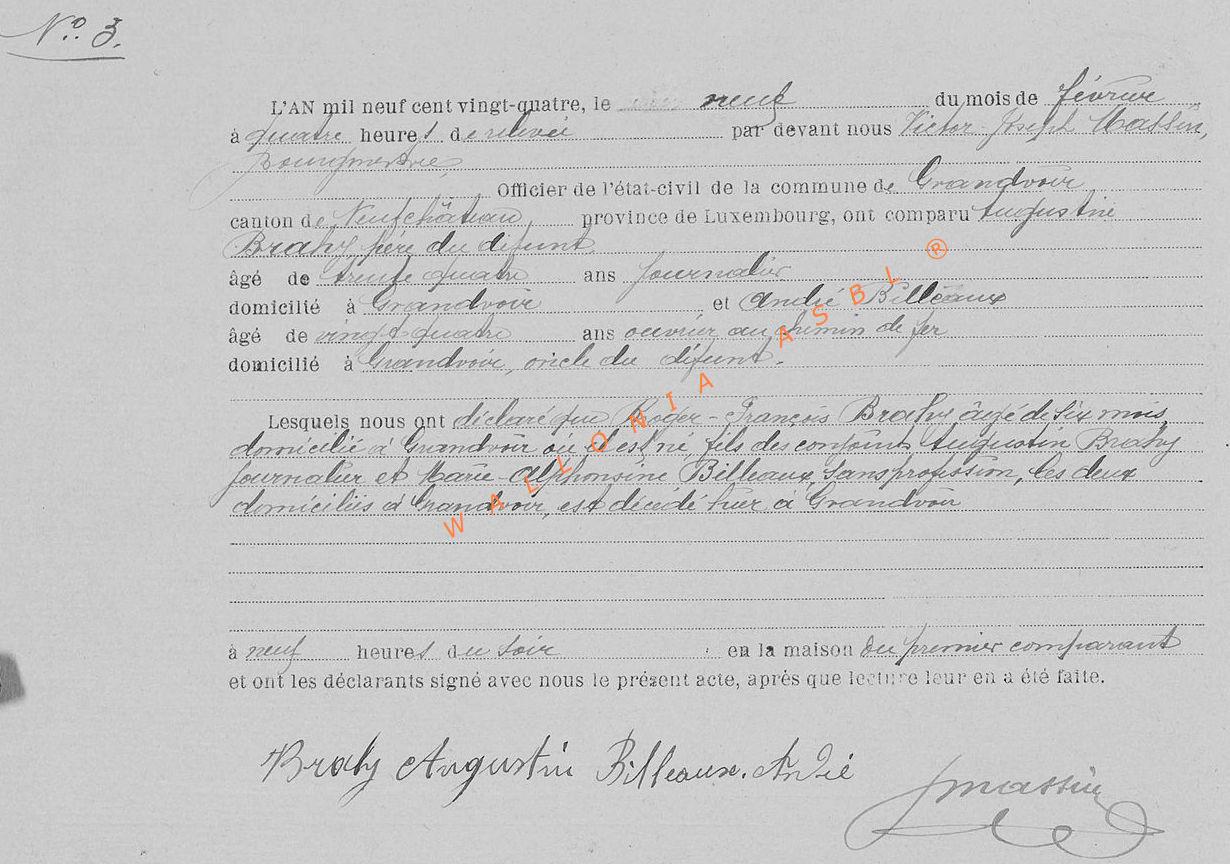 N.° 3.
L'AN mil neuf cent vingt-quatre, le neuf du mois de février
à quatre heures de relevée par devant nous Victor-Joseph Massin,
Bourgmestre
Officier de l'état-civil de la commune de Grandvoir
canton de Neufchâteau, province de Luxembourg, ont comparu Augustin
Brahy, père du défunt
âgé de trente quatre ans journalier
domicilié à Grandvoir et André Billeaux
âgé de vingt-quatre ans ouvrier au chemin de fer
domicilié à Grandvoir, oncle du défunt.
Lesquels nous ont déclaré que Roger-François Brahy âgé de six mois,
domicilié à Grandvoir où il est né, fils des conjoints Augustin Brahy
journalier et Marie-Alphonsine Billeaux, sans profession, les deux
domiciliés à Grandvoir, est décédé hier à Grandvoir
à neuf heures du soir en la maison du premier comparant
et ont les déclarants signé avec nous le présent acte, après que lecture leur en a été faite.
Brahy Augustin Billeaux. André
Jmassin
WALLONIA ASBL ®